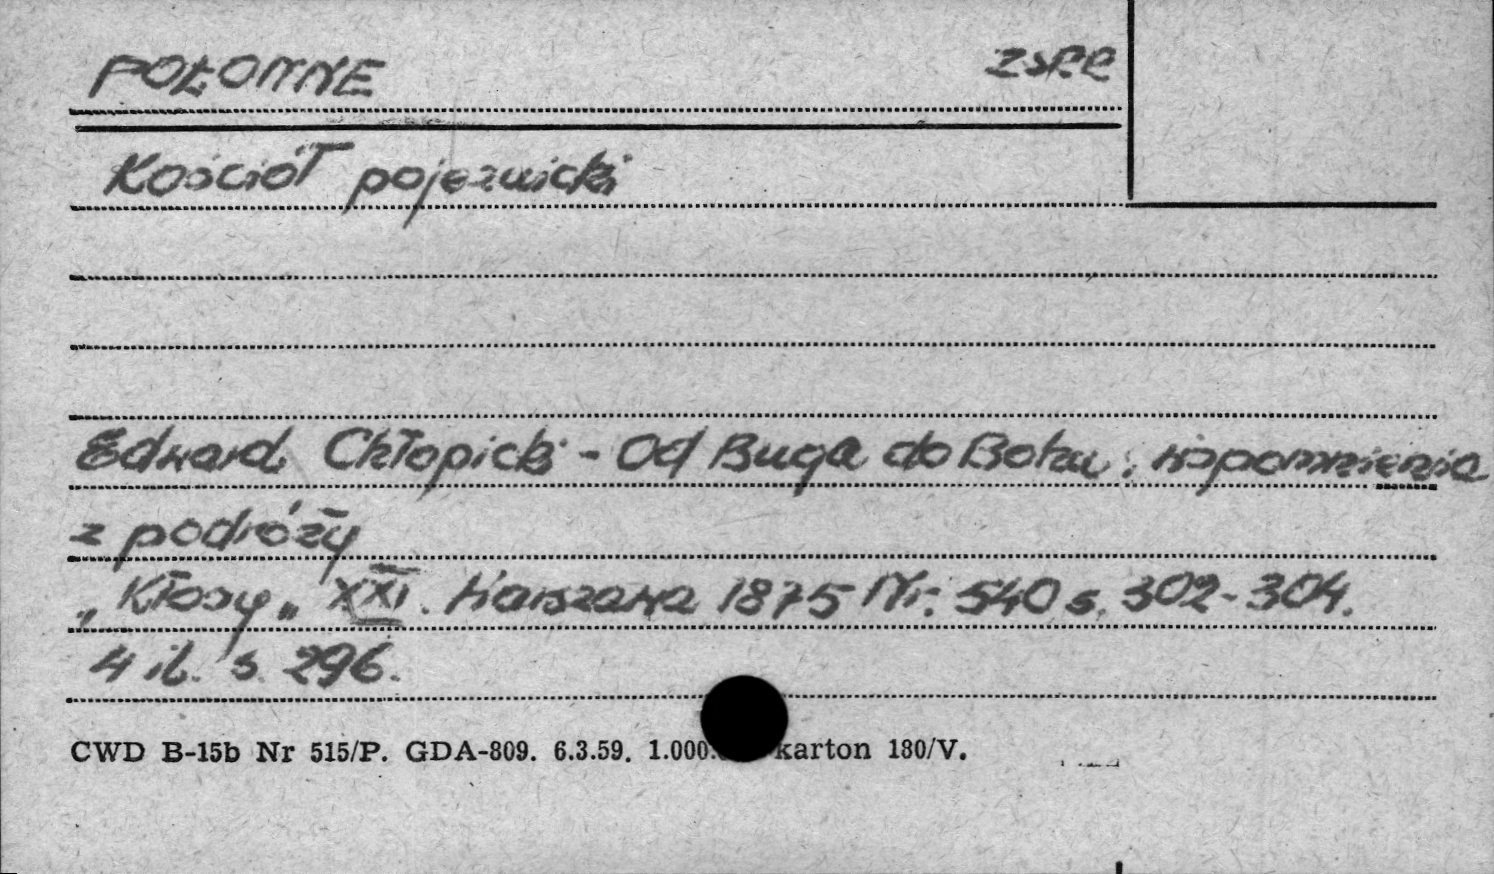 POŁONNE ZSRR
Kościół pojezuicki
Edward Chłopicki - Od Buga do Bohu, wspomnienia
z podróży
„Kłosy„ XXI. Warszawa 1875 Nr. 540 s. 302-304.
4 il. s. 296.
CWD B-15b Nr 515/P. GDA-809. 6.3.59. 1.000. karton 180/V.